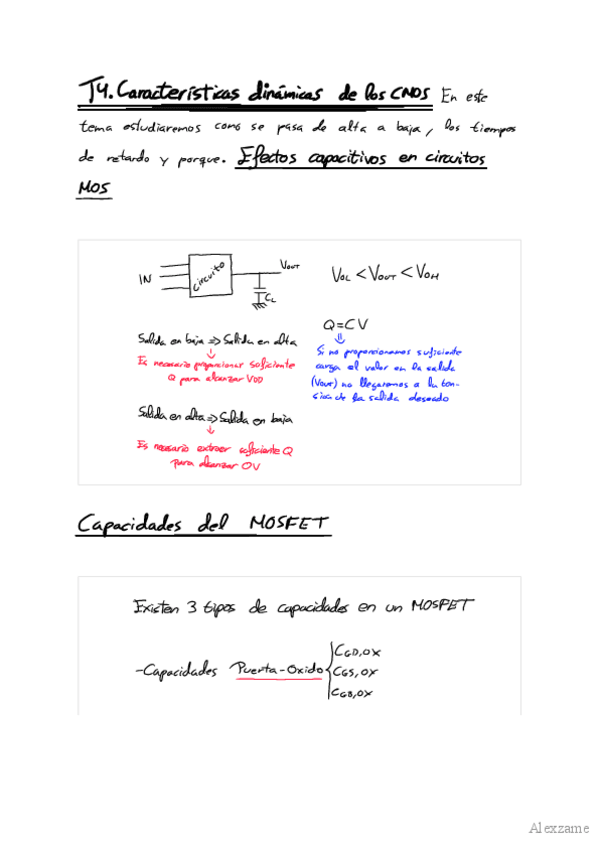 T4. Características dinámicas de los CMOS En este
tema estudiaremos como se pasa de alta a baja, los tiempos
de retardo y porque. Efectos capacitivos en circuitos
MOS
IN
circuito
VOUT
CL
VOL < VOUT < VOH
Q=CV
Si no proporcionamos suficiente
carga el valor en la salida
(VOUT) no llegaremos a la ten-
sion de la salida deseado
Salida en baja => Salida en alta
Es necesario proporcionar suficiente
Q para alcanzar VDD
Salida en alta => Salida en baja
Es necesario extraer suficiente Q
para alcanzar 0V
Capacidades del MOSFET
Existen 3 tipos de capacidades en un MOSFET
-Capacidades Puerta-Oxido
CGD,OX
CGS,OX
CGB,OX
Alexzame